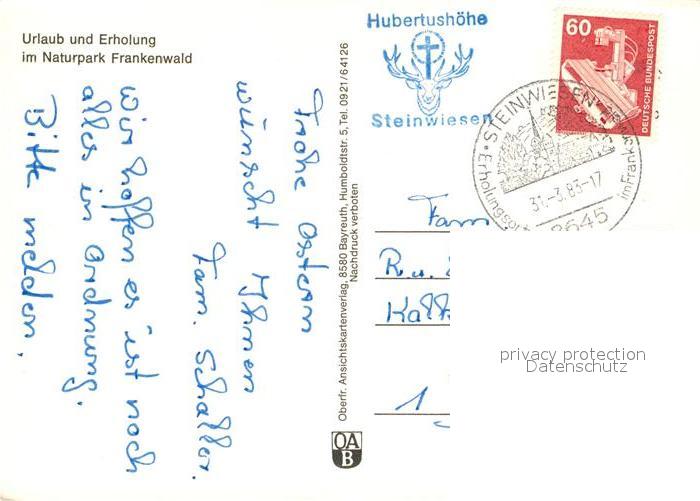 Urlaub und Erholung
im Naturpark Frankenwald
Frohe Ostern
wünscht Ihnen
Fam. Schaller.
Wir hoffen es ist noch
alles in Ordnung.
Bitte melden.
Oberfr. Ansichtskartenverlag, 8580 Bayreuth, Humboldtstr. 5, Tel. 0921/64126
Nachdruck verboten
OA
B
Hubertushöhe
Steinwiesen
60
DEUTSCHE BUNDESPOST
STEINWIESEN
Erholungsort
im Frank
31.-3.83-17
8645
Fam
R.u.
1
privacy protection
Datenschutz